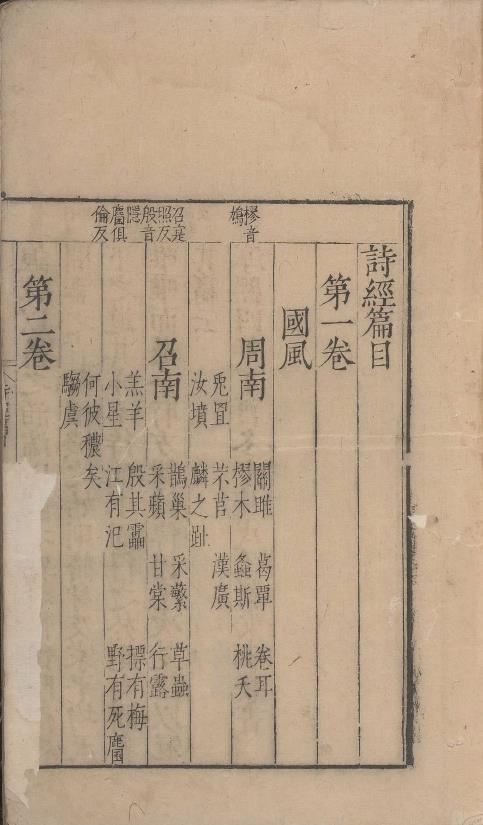 樛音
鳩
召寔
照反
殷音
隱
麕俱
倫反
詩經篇目
第一卷
國風
周南
關雎 葛覃 卷耳
樛木 螽斯 桃夭
兎罝 芣苢 漢廣
汝墳 麟之趾
召南
鵲巢 采蘩 草蟲
采蘋 甘棠 行露
羔羊 殷其靁 摽有梅
小星 江有汜 野有死麕
何彼穠矣
騶虞
第二卷